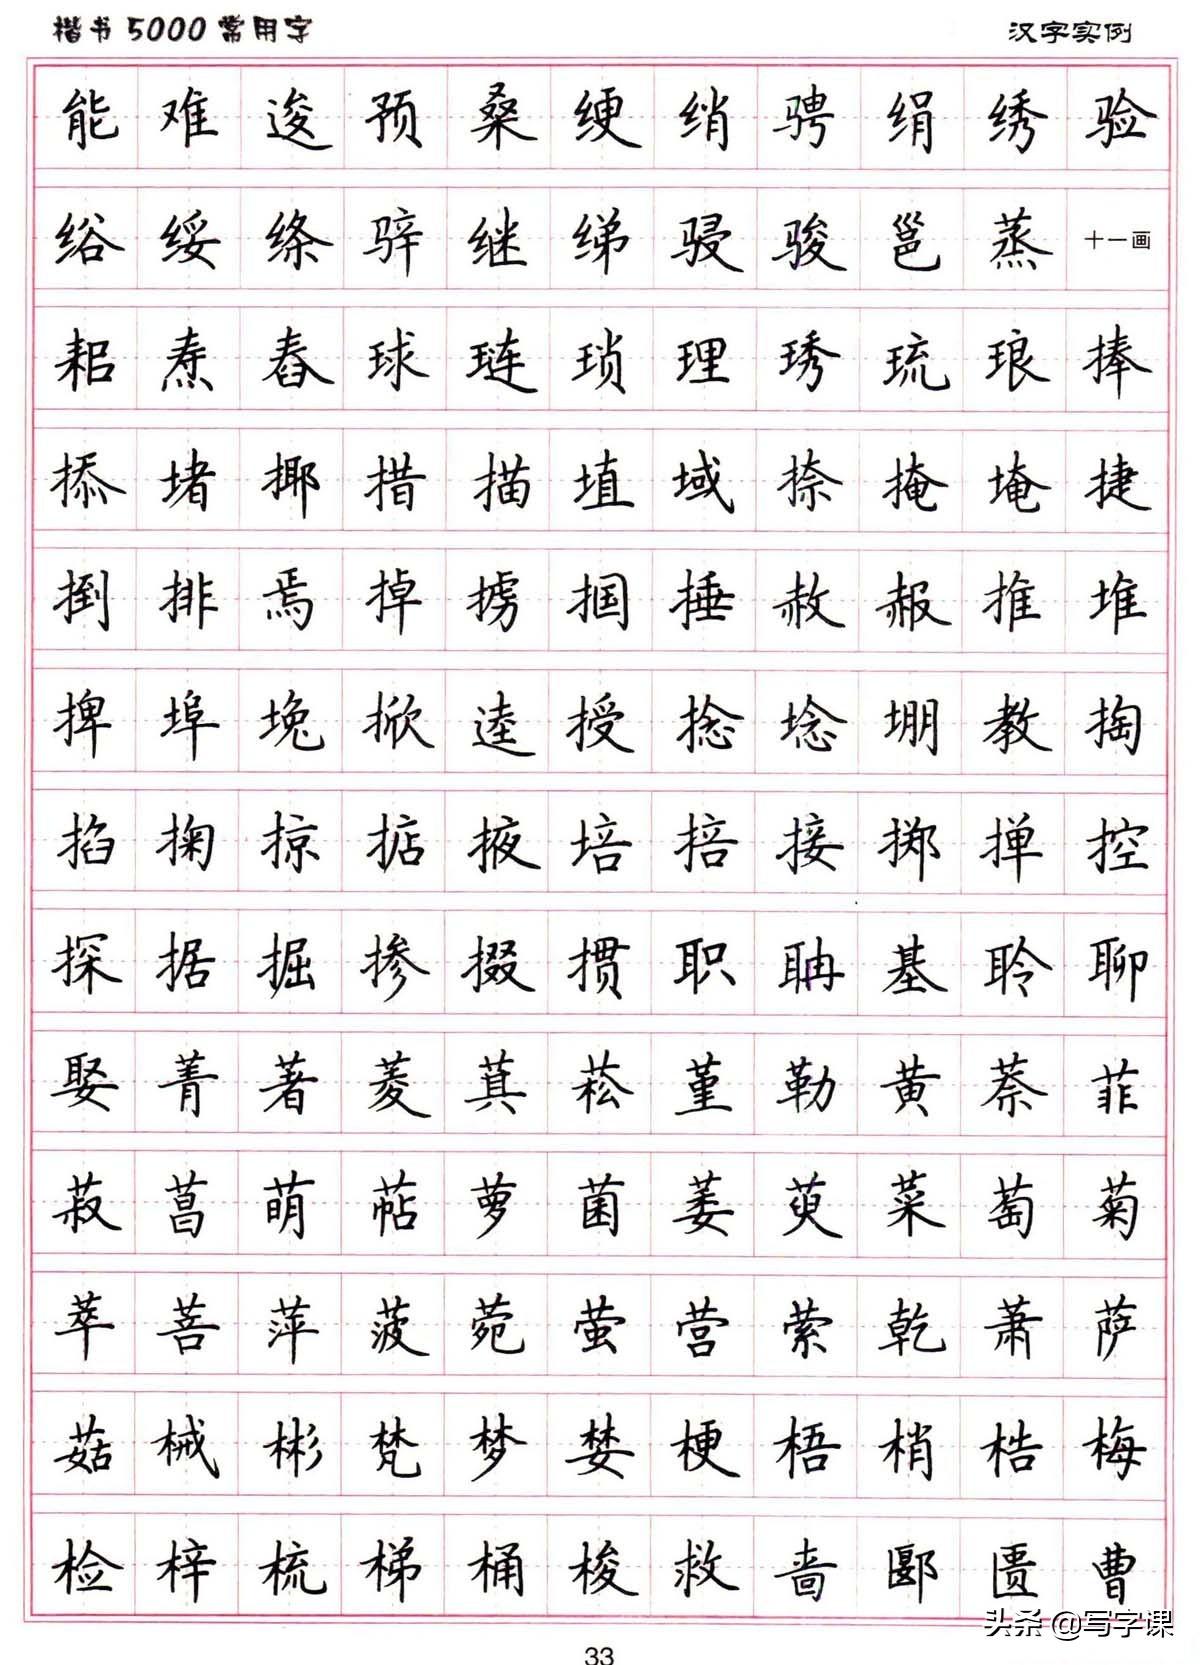 楷书5000常用字 汉字实例
能难逡预桑绠绡骋绢绣验
绤绥绦骍继绨骎骏邕蒸十一画
耜焘舂球琏琐理琇琉琅捧
掭堵揶措描埴域捺掩埯捷
捯排焉掉掳掴捶赦赧推堆
捭埠堍掀逵授捻埝堋教掏
掐掬掠掂掖培掊接掷掸控
探据掘掺掇掼职聃基聆聊
娶菁著菱萁菘堇勒黄萘菲
菽菖萌萜萝菌萎萸菜萄菊
萃菩萍菠菀萤营萦乾萧萨
菇械彬梵梦婪梗梧梢梏梅
检梓梳梯桶梭救啬郾匮曹
头条 @写字课
33